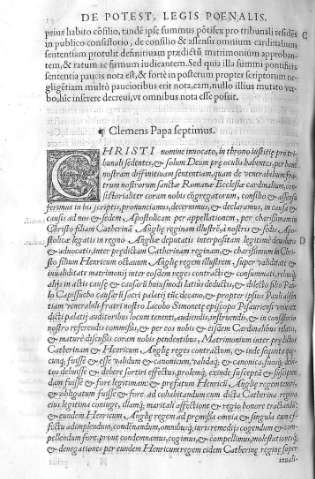 DE POTEST. LEGIS POENALIS.
prius habito cõsilio, tandẽ ipse summus põtifex pro tribunali residẽs
in publico consistorio, de consilio & assensu omnium cardinalium
sententiam protulit definitiuam prædictũ matrimonium approban-
tem, & ratum ac firmum iudicantem. Sed quia illa summi pontificis
sententia paucis nota est, & fortè in posterum propter scriptorum ne-
gligẽtiam multò paucioribus erit nota, eam, nullo illius mutato ver-
bo, hic inserere decreui, vt omnibus nota esse possit.
Clemens Papa septimus.
CHRISTI nomine inuocato, in throno iustitiæ pro tri-
bunali sedentes, & solum Deum præ oculis habentes, per hanc
nostram diffinitiuam sententiam, quam de venerabilium fra-
trum nostrorum sanctæ Romanæ Ecclesiæ cardinalium, con-
sistorialiter coram nobis congregatorum, consilio & assensu
ferimus in his scriptis, pronunciamus, decernimus, & declaramus, in causa &
causis ad nos & sedem Apostolicam per appellationem, per charissimam in
Christo filiam Catherinã Angliæ reginam illustrẽ, à nostris & sedis Apo-
stolicæ legatis in regno Angliæ deputatis interpositam legitimè deuolutis
& aduocatis, inter prædictam Catherinam reginam, & charissimum in Chri-
sto filium Henricum octauum Angliæ regem illustrem, super validitate &
inualiditate matrimonij inter eosdem reges contracti & consummati, rebusq́;
alijs in actis causæ & causarũ huiusmodi latius deductis, & dilecto filio Pau-
lo Capissucho causarũ sacri palatij tũc decano, & propter ipsius Pauli absen-
tiam venerabili fratri nostro Iacobo Simonetæ episcopo Pisauriensi vnius ex
dicti palatij auditoribus locum tenenti, audiendis, instruendis, & in consistorio
nostro referendis commissis, & per eos nobis & eisdem Cardinalibus relatis,
& maturè discussis coram nobis pendentibus, Matrimonium inter prædictos
Catherinam & Henricum Angliæ reges contractum, & inde sequuta quæ-
cunq́; fuisse & esse validum & canonicum, validaq́; & canonica, suosq́; debi-
tos debuisse & debere sortiri effectus, prolemq́; exinde susceptã & suscipien-
dam fuisse & fore legitimam: & præfatum Henricũ Angliæ regem teneri
& obligatum fuisse & fore ad cohabitandum cum dicta Catherina regina
eius legitima coniuge, illamq́; maritali affectione & regio honore tractandũ:
& eundem Henricum Angliæ regem ad præmissa omnia & singula cum ef-
fectu adimplendum, condemnandum, omnibusq́; iuris remedijs cogendum & com-
pellendum fore, prout condemnamus, cogimus, & compellimus, molestationesq́;
& denegationes per eundem Henricum regem eidem Catherinæ reginæ super
inuali-